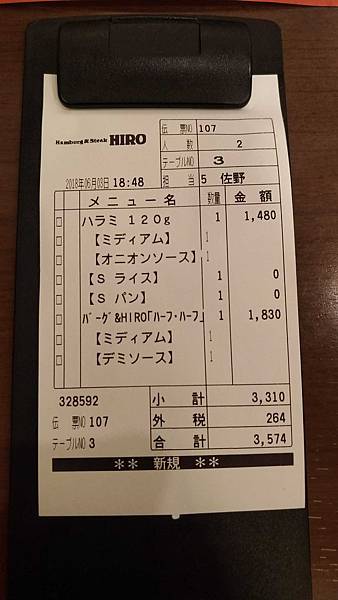 Hamburg & Steak HIRO
伝票NO 107
人数 2
テーブルNO 3
2018年06月03日 18:48 担当 5 佐野
メニュー名 数量 金額
ハラミ 120g 1 1,480
【ミディアム】 1
【オニオンソース】 1
【S ライス】 1 0
【S パン】 1 0
バーグ&HIRO「ハーフ・ハーフ」 1 1,830
【ミディアム】 1
【デミソース】 1
328592 小計 3,310
伝票NO 107 外税 264
テーブルNO 3 合計 3,574
** 新規 **